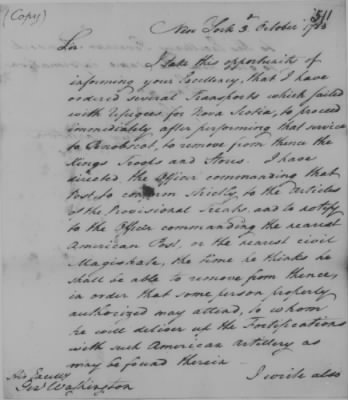 (Copy)
511
New York 3d October 1783
Sir
I take this opportunity of
informing your Excellency, that I have
ordered several Transports which sailed
with Refugees for Nova Scotia, to proceed
immediately after performing that service
to Penobscot, to remove from thence the
Kings Troops and Stores. I have
directed the Officer commanding that
Post, to conform strictly to the Articles
of the Provisional Treaty, and to notify
to the Officer commanding the nearest
American Post, or the nearest civil
Magistrate, the time he thinks he
shall be able to remove from thence,
in order that some person properly
authorized may attend, to whom
he will deliver up the Fortifications
with such American Artillery as
may be found therein
I write also
His Excelly
Genl Washington